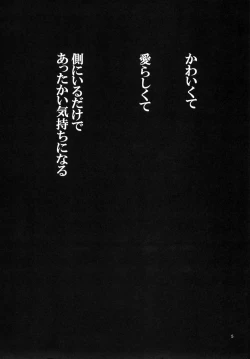 かわいくて
愛らしくて
側にいるだけで
あったかい気持ちになる
9